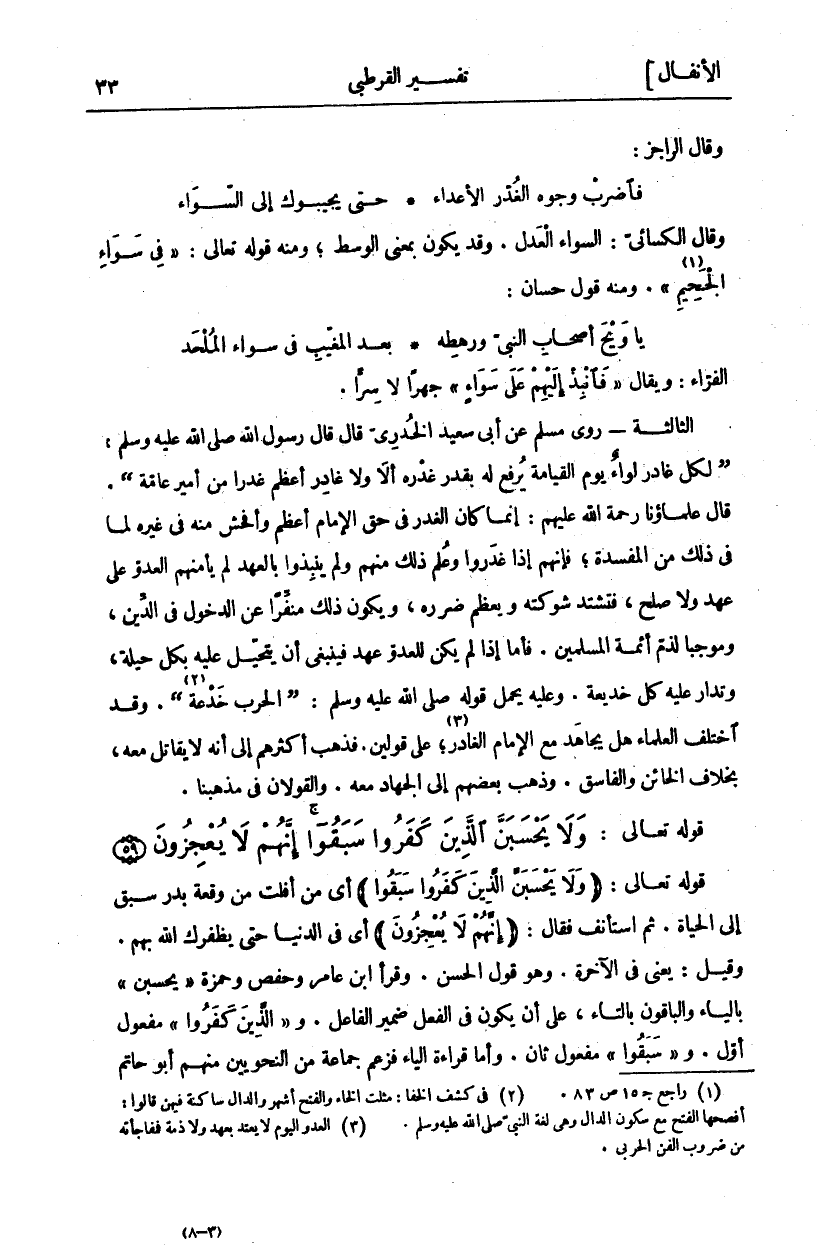 الأنفـال ]
تفســـير القرطبى
٣٣
وقال الراجز :
فٱضربْ وجوه الغُدّر الأعداء * حـتى يجيبـوك إلى السّـوَاء
وقال الكسائىّ : السواء الْعَدل . وقد يكون بمعنى الوسط ؛ ومنه قوله تعالى : « فِي سَـوَاءِ
الجَْحِيمِ (١) » . ومنه قول حسان :
يا وَيْحَ أصحـابِ النبىّ ورهطِه * بعـد المغيّبِ فى سـواء المُلْحَد
الفرّاء : ويقال « فَٱنْبِذْ إِلَيْهِمْ عَلَى سَوَاءٍ » جهرًا لا سِرًّا .
الثالثـــة — روى مسلم عن أبى سعيد الخُدرِىّ قال قال رسول الله صلى الله عليه وسلم :
” لكل غادر لواءٌ يوم القيامة يُرفع له بقدر غدْره ألَا ولا غادِر أعظم غدرا من أمير عامّة “ .
قال علماؤنا رحمة الله عليهم : إنمـا كان الغدر فى حق الإمام أعظم وأفحش منه فى غيره لمـا
فى ذلك من المفسدة ؛ فإنهم إذا غدَروا وعُلم ذلك منهم ولم ينبِذوا بالعهد لم يأمنهم العدوّ على
عهد ولا صلح ، فتشتد شوكته ويعظم ضرره ، ويكون ذلك منفِّرًا عن الدخول فى الدِّين ،
وموجبا لذمّ أئمـة المسلمين . فأما إذا لم يكن للعدوّ عهد فينبغى أن يتحيّـل عليه بكل حيلة ،
وتدار عليه كل خديعة . وعليه يحمل قوله صلى الله عليه وسلم : ” الحرب خَدْعة (٢) “ . وقـد
ٱختلف العلماء هل يجاهَد مع الإمام الغادر (٣) ؛ على قولين . فذهب أكثرهم إلى أنه لا يقاتل معه ،
بخلاف الخائن والفاسق . وذهب بعضهم إلى الجهاد معه . والقولان فى مذهبنا .
قوله تعـالى : وَلَا يَحْسَبَنَّ ٱلَّذِينَ كَفَرُوا سَبَقُوٓاْ ۚ إِنَّهُمْ لَا يُعْجِزُونَ ٥٩
قوله تعـالى : ﴿ وَلَا يَحْسَبَنَّ الَّذِينَ كَفَرُوا سَبَقُوا ﴾ أى من أفلت من وقعة بدر سبق
إلى الحياة . ثم استأنف فقال : ﴿ إِنَّهُمْ لَا يُعْجِزُونَ ﴾ أى فى الدنيـا حتى يظفرك الله بهم .
وقيـل : يعنى فى الآخرة . وهو قول الحسن . وقرأ ابن عامر وحفص وحمزة « يحسبن »
باليـاء والباقون بالتـاء ، على أن يكون فى الفعل ضمير الفاعل . و « الَّذِينَ كَفَرُوا » مفعول
أوّل . و « سَبَقُوا » مفعول ثان . وأما قراءة الياء فزعم جماعة من النحويين منهـم أبو حاتم
(١) راجع جـ ١٥ ص ٨٣ . (٢) فى كشف الخفا : مثلث الخاء والفتح أشهر والدال ساكنة فيهن قالوا :
أفصحها الفتح مع سكون الدال وهى لغة النبىّ صلى الله عليه وسلم . (٣) العدو اليوم لا يعتد بعهد ولا ذمة ففاجأته
من ضروب الفن الحربى .
(٨-٣)